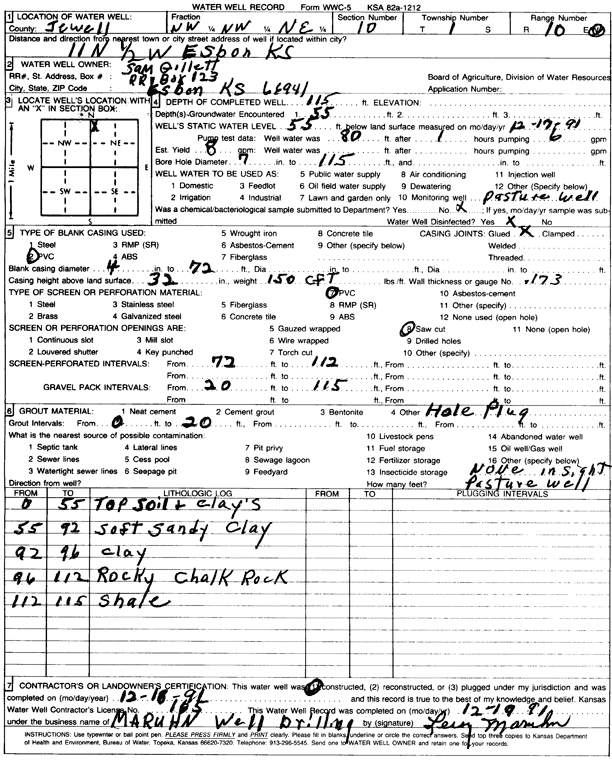 WATER WELL RECORD Form WWC-5 KSA 82a-1212
1 LOCATION OF WATER WELL: Fraction Section Number Township Number Range Number
County: Jewell NW ¼ NW ¼ NE ¼ 10 T 1 S R 10 E W
Distance and direction from nearest town or city street address of well if located within city?
11 N ½ W Esbon KS
2 WATER WELL OWNER: Sam Gillett
RR#, St. Address, Box # : RR Box 123 Board of Agriculture, Division of Water Resources
City, State, ZIP Code : Esbon KS 66941 Application Number:
3 LOCATE WELL'S LOCATION WITH AN "X" IN SECTION BOX:
N
X
NW NE
W E
SW SE
S
1 Mile
4 DEPTH OF COMPLETED WELL 115 ft. ELEVATION:
Depth(s)-Groundwater Encountered 1. 55 ft. 2. ft. 3. ft.
WELL'S STATIC WATER LEVEL 55 ft. below land surface measured on mo/day/yr 12-17-91
Pump test data: Well water was 80 ft. after 1 hours pumping 6 gpm
Est. Yield 8 gpm: Well water was ft. after hours pumping gpm
Bore Hole Diameter 7 in. to 115 ft., and in. to ft.
WELL WATER TO BE USED AS: 5 Public water supply 8 Air conditioning 11 Injection well
1 Domestic 3 Feedlot 6 Oil field water supply 9 Dewatering 12 Other (Specify below)
2 Irrigation 4 Industrial 7 Lawn and garden only 10 Monitoring well Pasture well
Was a chemical/bacteriological sample submitted to Department? Yes No X If yes, mo/day/yr sample was submitted
Water Well Disinfected? Yes X No
5 TYPE OF BLANK CASING USED: 5 Wrought iron 8 Concrete tile CASING JOINTS: Glued X Clamped
1 Steel 3 RMP (SR) 6 Asbestos-Cement 9 Other (specify below) Welded
2 PVC 4 ABS 7 Fiberglass Threaded
Blank casing diameter 4 in. to 72 ft., Dia in. to ft., Dia in. to ft.
Casing height above land surface 32 in., weight 150 CFT lbs./ft. Wall thickness or gauge No. .173
TYPE OF SCREEN OR PERFORATION MATERIAL: 7 PVC 10 Asbestos-cement
1 Steel 3 Stainless steel 5 Fiberglass 8 RMP (SR) 11 Other (specify)
2 Brass 4 Galvanized steel 6 Concrete tile 9 ABS 12 None used (open hole)
SCREEN OR PERFORATION OPENINGS ARE: 5 Gauzed wrapped 8 Saw cut 11 None (open hole)
1 Continuous slot 3 Mill slot 6 Wire wrapped 9 Drilled holes
2 Louvered shutter 4 Key punched 7 Torch cut 10 Other (specify)
SCREEN-PERFORATED INTERVALS: From 72 ft. to 112 ft., From ft. to ft.
From ft. to ft., From ft. to ft.
GRAVEL PACK INTERVALS: From 20 ft. to 115 ft., From ft. to ft.
From ft. to ft., From ft. to ft.
6 GROUT MATERIAL: 1 Neat cement 2 Cement grout 3 Bentonite 4 Other Hole Plug
Grout Intervals: From 0 ft. to 20 ft., From ft. to ft., From ft. to ft.
What is the nearest source of possible contamination: 10 Livestock pens 14 Abandoned water well
1 Septic tank 4 Lateral lines 7 Pit privy 11 Fuel storage 15 Oil well/Gas well
2 Sewer lines 5 Cess pool 8 Sewage lagoon 12 Fertilizer storage 16 Other (specify below)
3 Watertight sewer lines 6 Seepage pit 9 Feedyard 13 Insecticide storage None in Sight
Direction from well? How many feet? Pasture well
FROM TO LITHOLOGIC LOG FROM TO PLUGGING INTERVALS
0 55 Top Soil + Clay's
55 92 Soft Sandy Clay
92 96 Clay
96 112 Rocky Chalk Rock
112 115 Shale
7 CONTRACTOR'S OR LANDOWNER'S CERTIFICATION: This water well was (1) constructed, (2) reconstructed, or (3) plugged under my jurisdiction and was
completed on (mo/day/year) 12-18-91 and this record is true to the best of my knowledge and belief. Kansas
Water Well Contractor's License No. This Water Well Record was completed on (mo/day/yr) 12-19-91
under the business name of MARUHN Well Drilling by (signature) Leroy Maruhn
INSTRUCTIONS: Use typewriter or ball point pen. PLEASE PRESS FIRMLY and PRINT clearly. Please fill in blanks, underline or circle the correct answers. Send top three copies to Department
of Health and Environment, Bureau of Water, Topeka, Kansas 66620-7320. Telephone: 913-296-5545. Send one to WATER WELL OWNER and retain one for your records.